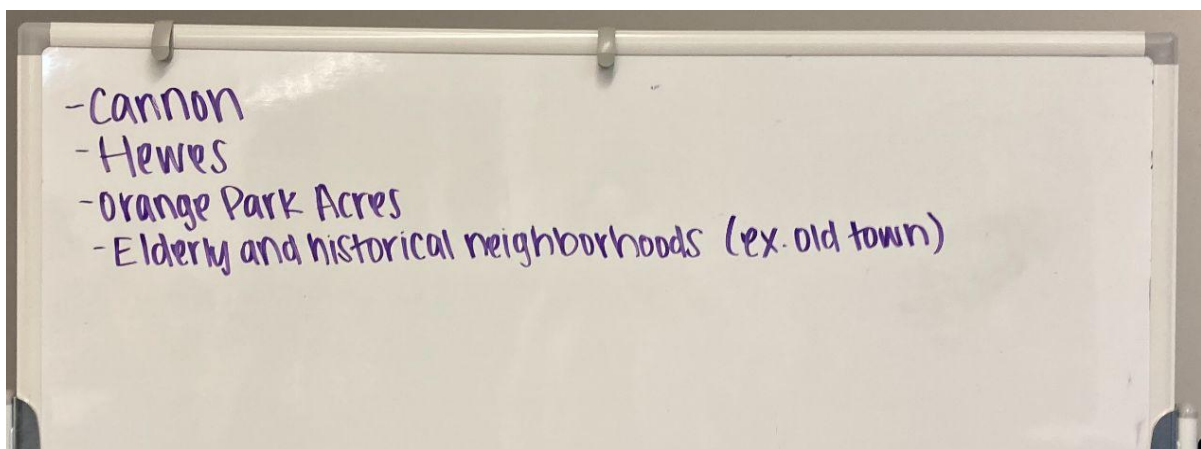 -Cannon
-Hewes
-Orange Park Acres
-Elderly and historical neighborhoods (ex. old town)